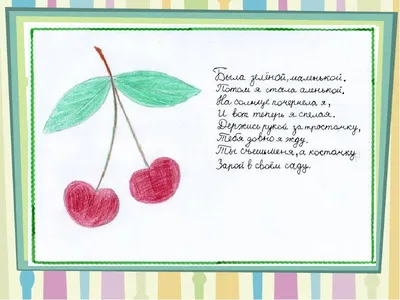 Была зелёной, маленькой.
Потом я стала аленькой.
На солнце почернела я,
И вот теперь я спелая.
Держись рукой за тросточку,
Тебя давно я жду.
Ты съешь меня, а косточку
Зарой в своём саду.